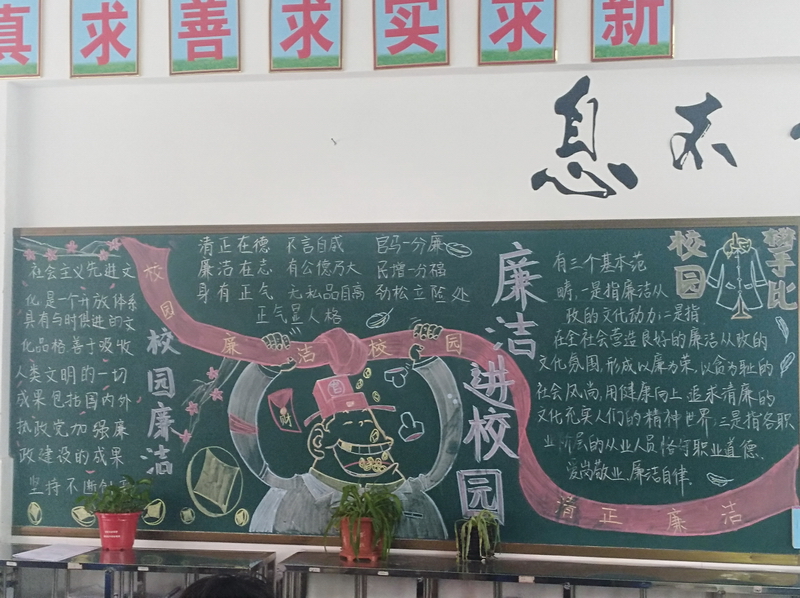 真 求 善 求 实 求 新
息 不
社会主义先进文
化是一个开放体系
具有与时俱进的文
化品格善于吸收
人类文明的一切
成果包括国内外
执政党加强廉
政建设的成果
坚持不断创
校园廉洁
清正在德 不言自威 官马一分廉
廉洁在志 有公德乃大 民增一分福
身有正气 无私品自高 劲松立险处
正气显人格
校园廉洁校园
廉洁进校园
有三个基本范
畴,一是指廉洁从
政的文化动力;二是指
在全社会营造良好的廉洁从政的
文化氛围,形成以廉为荣,以贪为耻的
社会风尚,用健康向上,追求清廉的
文化充实人们的精神世界;三是指各职
业阶层的从业人员恪守职业道德,
爱岗敬业,廉洁自律.
校园
攀比
清正廉洁